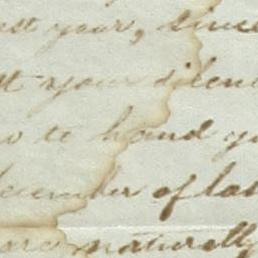 st your, since
st your silence
to hand yo
December of las
are naturally